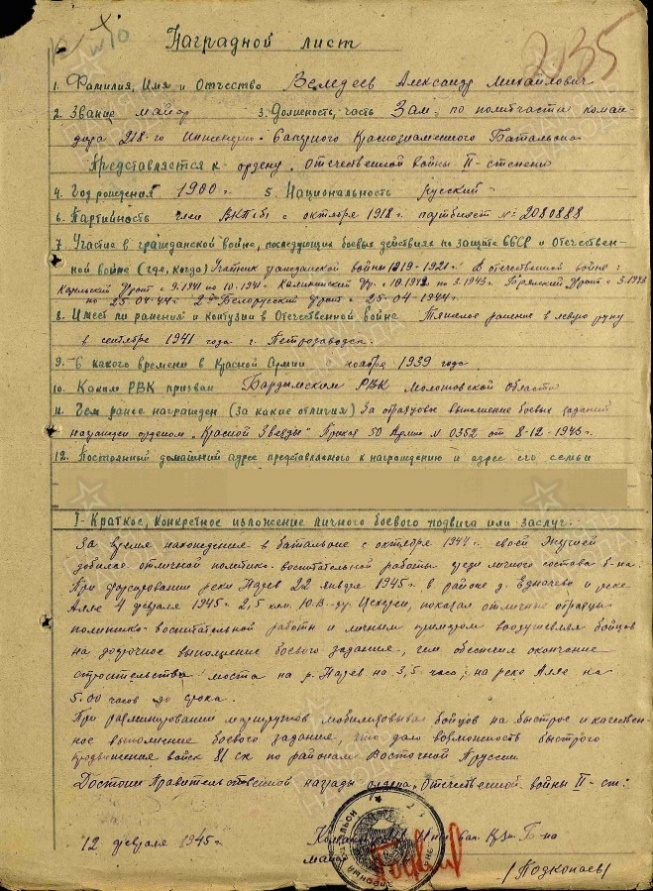 Наградной лист
2135
1. Фамилия, Имя и Отчество Веледеев Александр Михайлович
2. Звание майор 3. Должность, часть Зам. по политчасти коман-
дира 218-го Инженерно-Саперного Краснознаменного Батальона
Представляется к ордену „Отечественной войны II-степени
4. Год рождения 1900 г. 5. Национальность русский
6. Партийность член ВКП(б) с октября 1918 г. партбилет №: 2080888
7. Участие в гражданской войне, последующих боевых действиях по защите СССР и Отечествен-
ной войне (где, когда) Участник гражданской войны 1919-1921 г. В отечественной войне:
Карельский Фронт с 9.1941 по 10.1941. Калининский Фр. с 10.1942 по 3.1943. Брянский Фронт с
по 25-04-44 2й Белорусский фронт с 25-04-1944 г.
8. Имеет ли ранения и контузии в Отечественной войне Тяжелое ранение в левую руку
в сентябре 1941 года г. Петрозаводск.
9. С какого времени в Красной Армии с ноября 1939 года
10. Каким РВК призван Бардымским РВК Молотовской области
11. Чем ранее награжден (за какие отличия) За образцовое выполнение боевых заданий
награжден орденом „Красной Звезды" Приказ 50 Армии № 0352 от 8-12-1943 г.
12. Постоянный домашний адрес представляемого к награждению и адрес его семьи
I - Краткое, конкретное изложение личного боевого подвига или заслуг.
За время нахождения в батальоне с октября 1944 г. своей
добился отличной политико-воспитательной работы среди личного состава б-на.
При форсировании реки Нарев 22 января 1945 г. в районе д. и реке
Алле 4 февраля 1945 г. 2,5 клм. Ю.В. показал отличные образцы
политико-воспитательной работы и личным примером воодушевлял бойцов
на досрочное выполнение боевого задания, чем обеспечил окончание
строительства моста на р. Нарев на 3,5 часа, на реке Алле на
5.00 часов до срока.
При разминировании маршрутов мобилизовывал бойцов на быстрое и качествен-
ное выполнение боевого задания, что дало возможность быстрого
продвижения войск 81 ск по районам Восточной Пруссии.
Достоин Правительственной награды ордена „Отечественной войны II-ст:
12 февраля 1945 г.
майор
(Подкопаев)